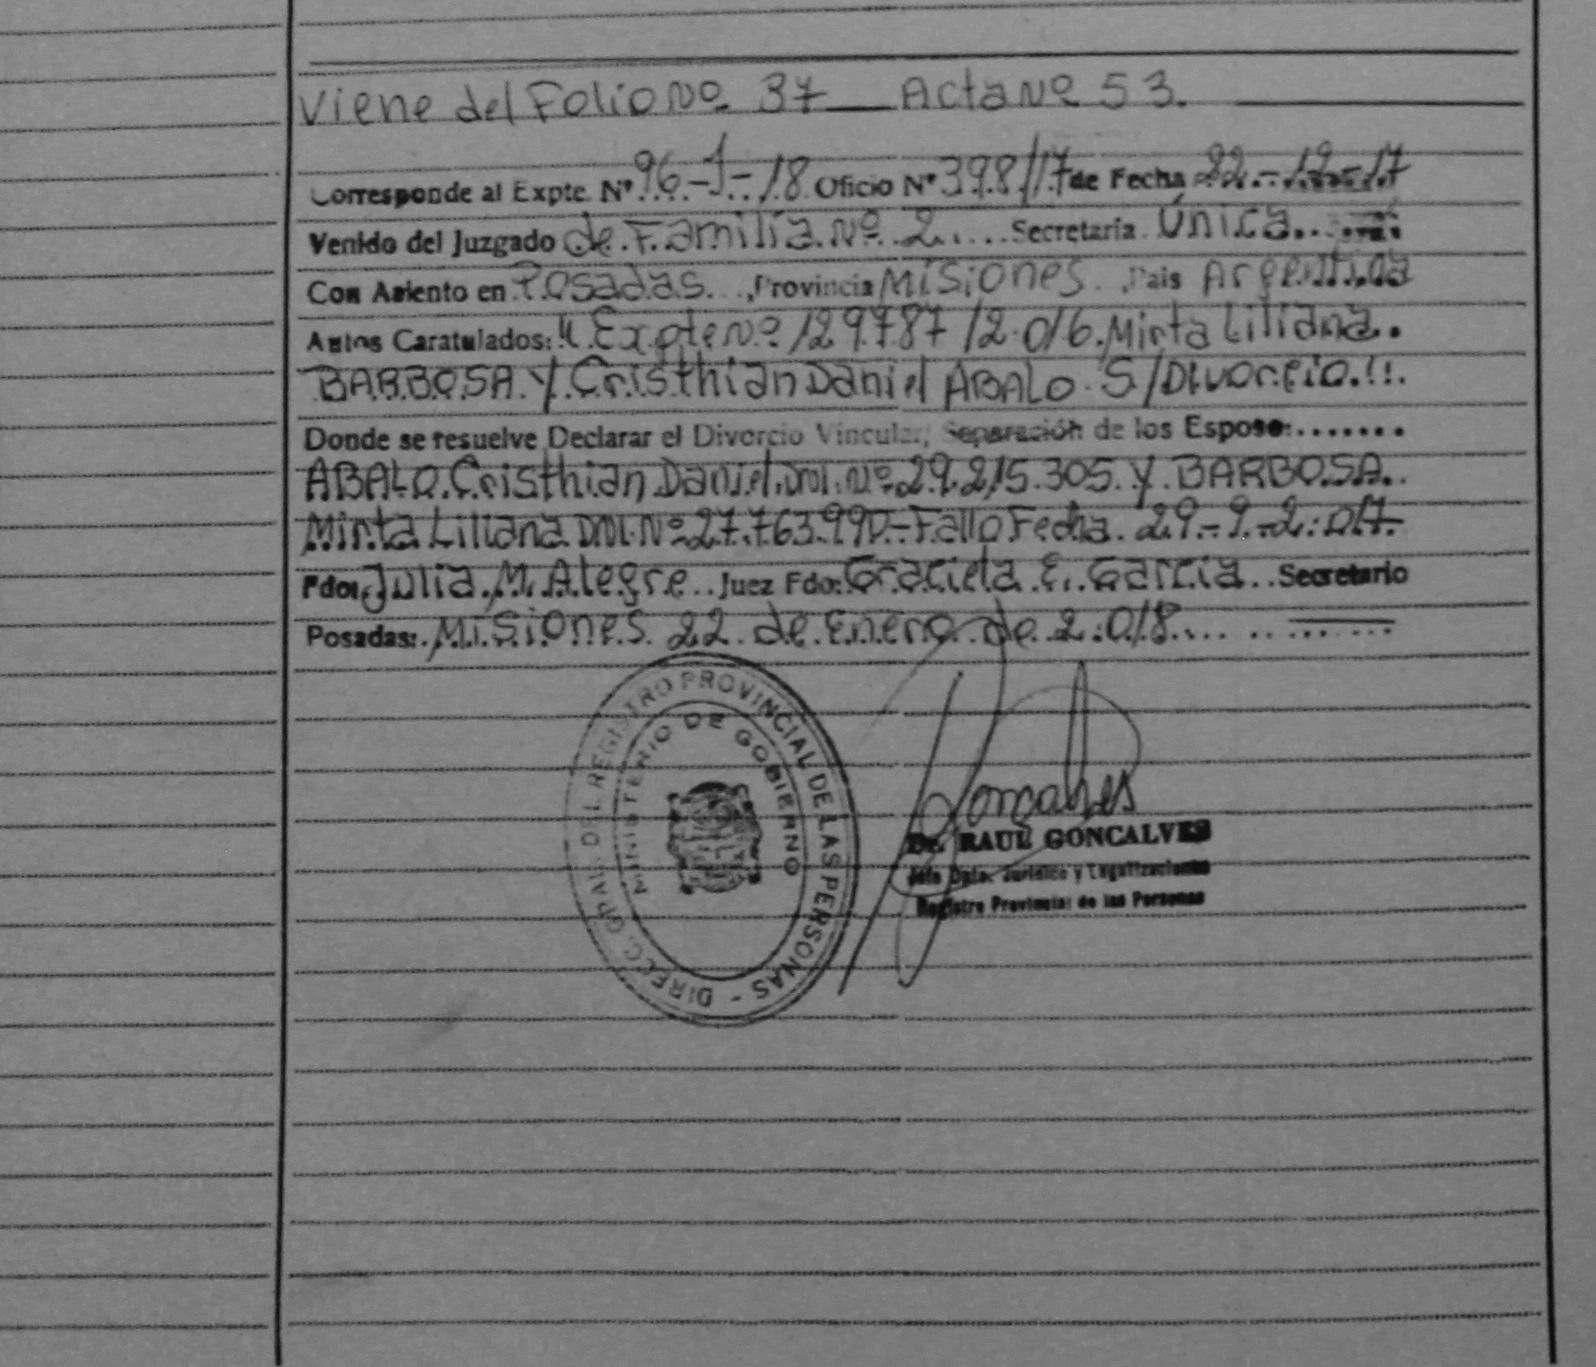 Viene del Folio Nº 37 Acta Nº 53.
Corresponde al Expte. Nº 96-J-18 Oficio Nº 398/17 de Fecha 22-12-17
Venido del Juzgado de Familia Nº 2 Secretaría Única
Con Asiento en Posadas, Provincia Misiones, País Argentina
Autos Caratulados: "Expte Nº 129787/2.016. Mirta Liliana
BARBOSA Y Cristhian Daniel ABALO S/Divorcio."
Donde se resuelve Declarar el Divorcio Vincular, Separación de los Espose:
ABALO Cristhian Daniel DNI. Nº 29.215.305 Y BARBOSA
Mirta Liliana DNI. Nº 27.763.990-Fallo Fecha 29-9-2.017-
Fdo: Julia M. Alegre Juez Fdo: Graciela E. Garcia Secretario
Posadas: Misiones 22 de Enero de 2.018
DIRECC. GRAL. DEL REGISTRO PROVINCIAL DE LAS PERSONAS -
MINISTERIO DE GOBIERNO
Goncalves
Dr. RAUL GONCALVES
Jefe Dpto. Jurídico y Legalizaciones
Registro Provincial de las Personas